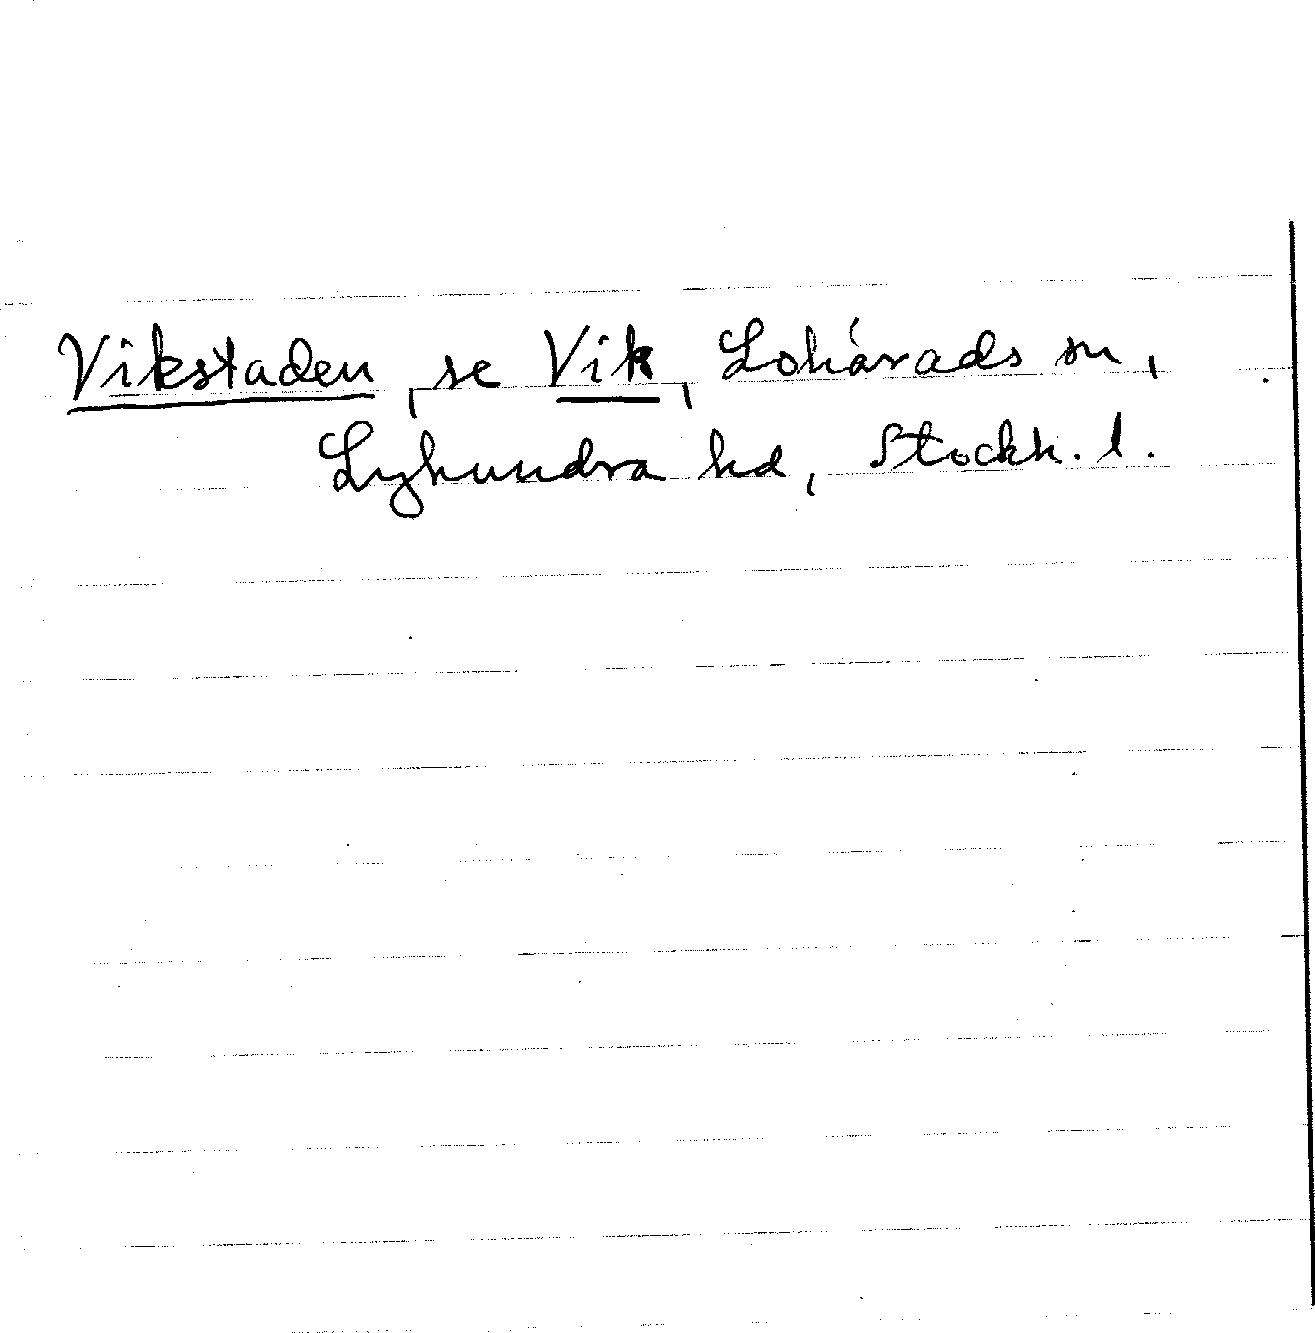 Vikstaden, se Vik, Lohärads sn,
Lyhundra hd, Stockh. l.